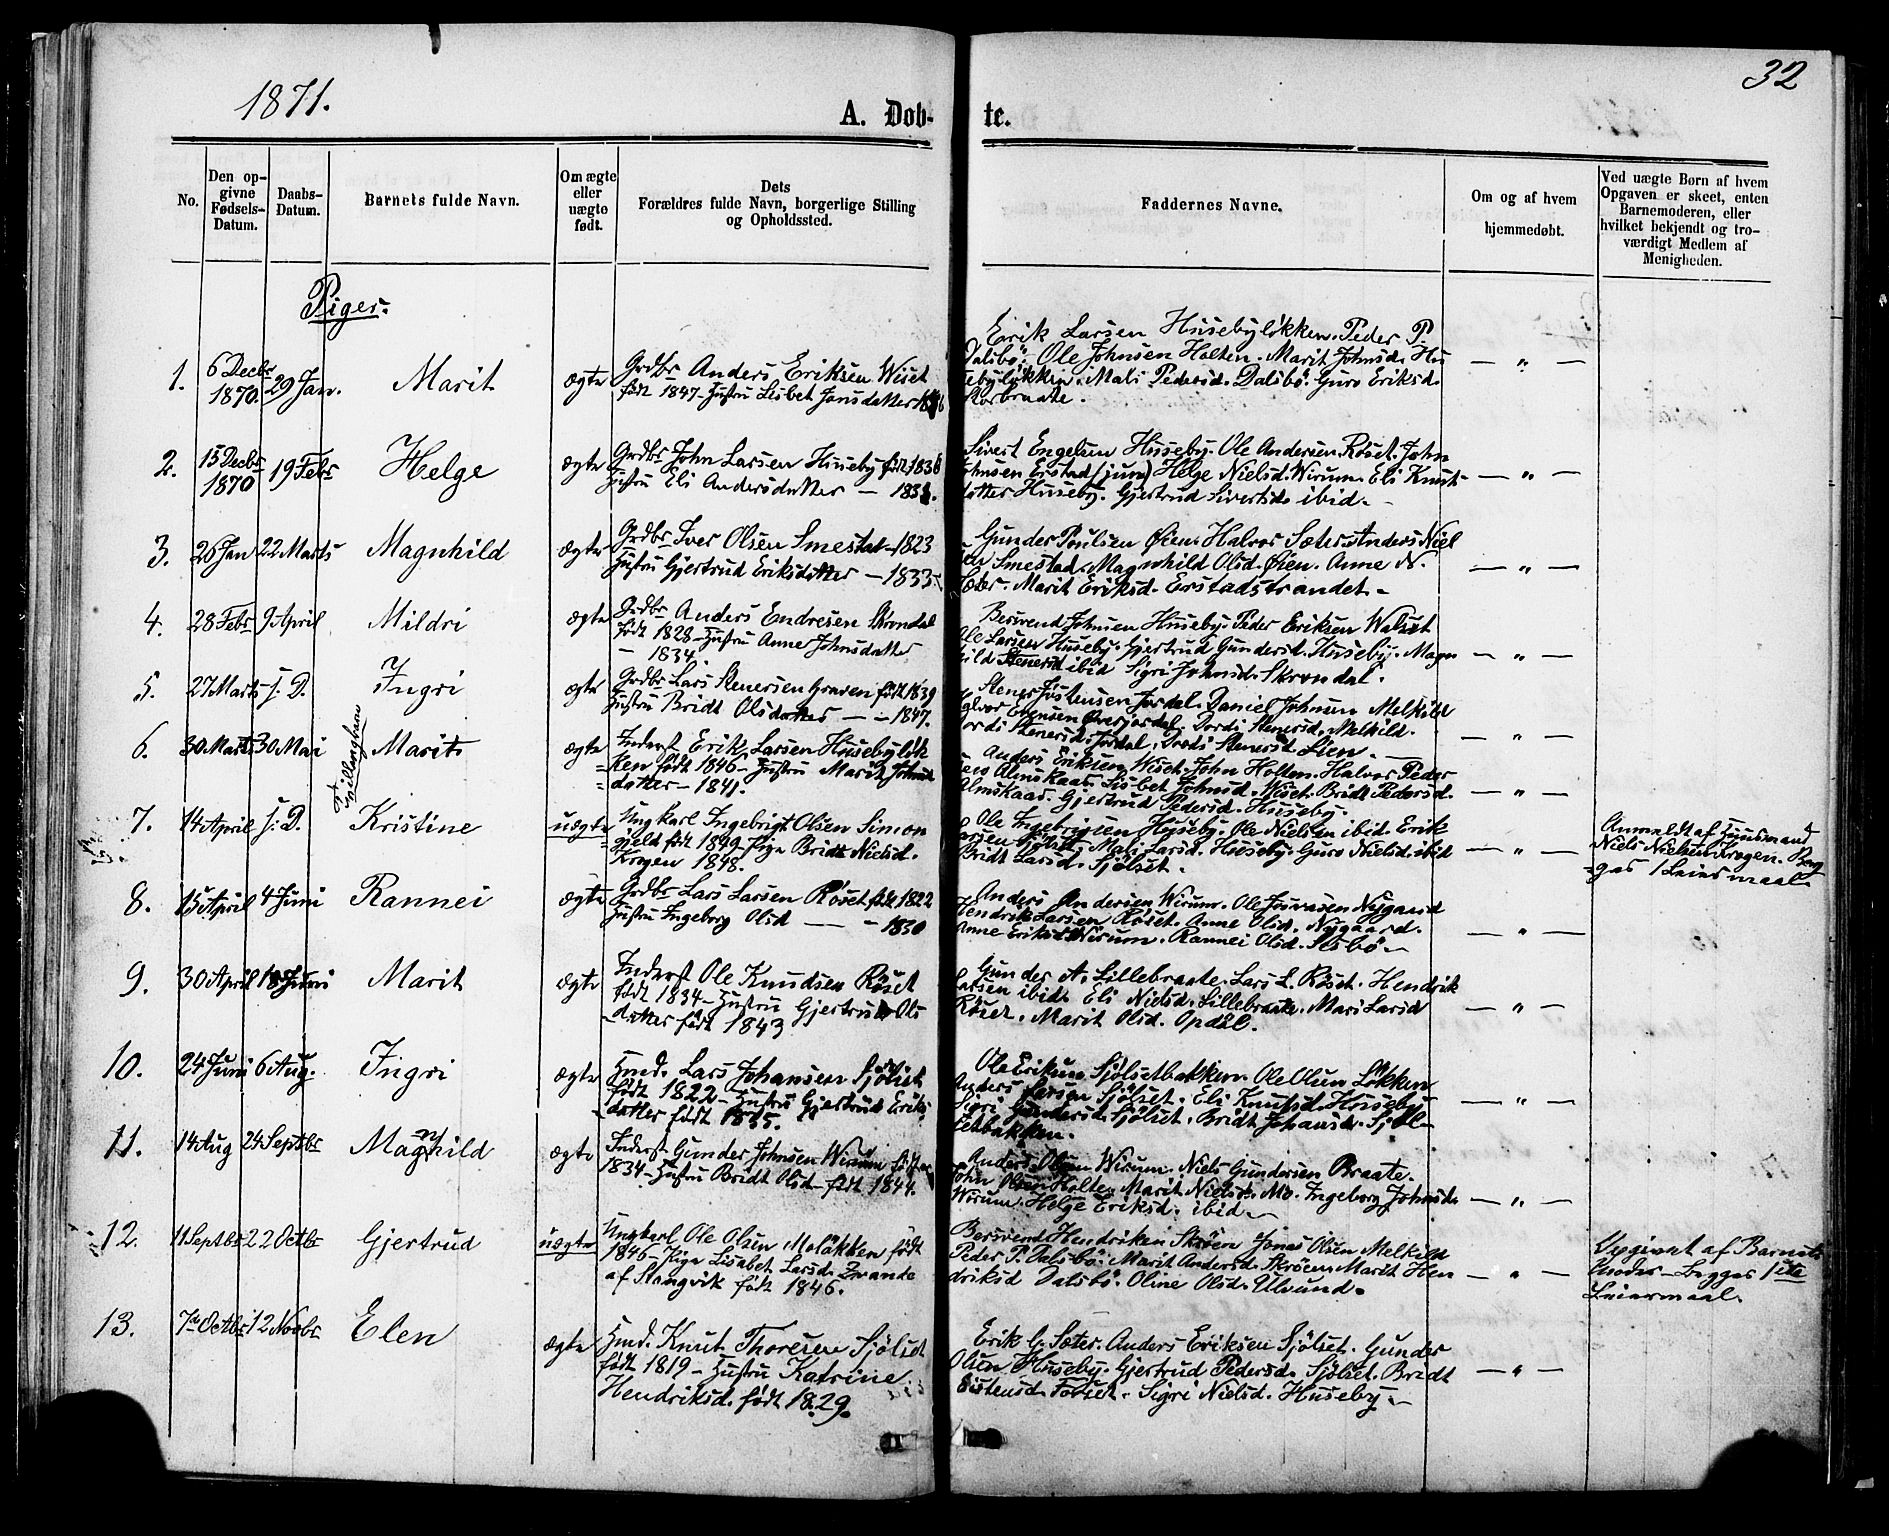 1871.
32
A. Døb-
te.
No.
Den op-
givne
Fødsels-
Datum.
Daabs-
Datum.
Barnets fulde Navn.
Om ægte
eller
uægte
født.
Dets
Forældres fulde Navn, borgerlige Stilling
og Opholdssted.
Faddernes Navne.
Om og af hvem
hjemmedøbt.
Ved uægte Børn af hvem
Opgaven er skeet, enten
Barnemoderen, eller
hvilket bekjendt og tro-
værdigt Medlem af
Menigheden.
Piger.
1. 6 Decbr 1870. 29 Jan. Marit ægte
Grdbr Anders Eriksen Wiset
født 1847 - Hustru Lisbet Jonsdatter
Erik Larsen Husebyløkken. Peder P.
Dalsbø. Ole Johnsen Holten. Marit Johnsd. Hu
sebyløkken. Mali Pedersd. Dalsbø. Guro Eriksd.
Korbraate.
— „ —
2. 15 Decbr 1870 19 Febr Helge ægte
Grdbr John Larsen Huseby født 1836
Hustru Eli Andersdatter —
Sivert Engelsen Huseby. Ole Andersen Røset. John
Johnsen Erstad (jun) Helge Nielsd. Wirum. Eli Knut-
datter Huseby. Gjertrud Sivertsd. ibid.
— „ —
3. 26 Jan 22 Marts Magnhild ægte
Grdbr Iver Olsen Smestad - 1823
Hustru Gjertrud Eriksdatter — 1833
Gunder Poulsen Øien. Halvor Sæter. Anders Niel
sen Smestad. Magnhild Olsd. Øien. Anne N.
Sæter. Marit Eriksd. Erstadstrandet.
— „ —
4. 28 Febr 9 April Mildri ægte
Grdbr Anders Endresen Skrondal
født 1828 - Hustru Anne Johnsdatter
— 1834.
Bersvend Johnsen Huseby. Peder Eriksen
Ole Larsen Huseby. Gjertrud Gundersd. Huseby. Magn
hild Stenersd ibid Sigri Johnsd. Skrondal.
— „ —
5. 27 Marts s. D. Ingri ægte
Grdbr Lars Stenersen Graven født 1839
Hustru Bridt Olsdatter — 1847.
Stener Jostensen Jordal. Daniel Johnsen Melkild
Halvor Evensen Øverjordal. Dordi Stenersd. Melkild.
Gjordi Stenersd. Jordal. Dordi Stenersd. Lien.
— „ —
6. 30 Marts 30 Mai Marit ægte
Inderst Erik Larsen Husebyløk
ken født 1846 - Hustru Marit Johns
datter - 1841.
Anders Eriksen Wiset. John Holten. Halvor Peder
sen Almskaas. Lisbet Johnsd. Wiset. Bridt Pedersd.
Almskaas. Gjertrud Pedersd. Huseby.
— „ —
7. 14 April s. D. Kristine uægte
Ungkarl Ingebrigt Olsen Simon
gjeld født 1849 - Pige Bridt Nielsd.
Krogen 1848.
Ole Ingebrigtsen Huseby. Ole Nielsen ibid. Erik
Larsen Sjølset. Mali Larsd. Huseby. Guro Nielsd. ibid
Bridt Larsd. Sjølset.
— „ —
Anmeldt af Huusmand
Niels Nielsen Krogen. Beg
ges 1 Leiermaal.
8. 15 April 4 Juni Rannei ægte
Grdbr Lars Larsen Røset født 1822
Hustru Ingeborg Olsd — 1830
Anders Andersen Wirum. Ole Nygaard
Hendrik Larsen Røset. Anne Olsd. Nygaard.
Anne Eriksd. Wirum. Rannei Olsd.
— „ —
9. 30 April 18 Juni Marit ægte
Inderst Ole Knudsen Røset
født 1834 - Hustru Gjertrud Ols
datter født 1843
Gunder A. Lillebraate. Lars L. Røset. Hendrik
Larsen ibid. Eli Nielsd. Lillebraate. Mari Larsd
Røset. Marit Olsd. Opdøl.
— „ —
10. 24 Juni 6 Aug. Ingri ægte
Hmd. Lars Johansen Sjølset
født 1822 - Hustru Gjertrud Eriks
datter født 1835.
Ole Eriksen Sjølsetbakken. Ole Olsen Løkken
Anders Larsen Sjølset. Eli Knutsd. Huseby
Sigri Gundersd. Sjølset. Bridt Johansd. Sjøl-
setbakken.
— „ —
11. 14 Aug 24 Septbr Magnhild ægte
Inderst Gunder Johnsen Wirum født
1834 - Hustru Bridt Olsd - født 1844.
Anders Olsen Wirum. Niels Gundersen Braate.
John Olsen Holte. Marit Nielsd. Mo. Ingeborg Johnsd.
Wirum. Helge Eriksd. ibid.
— „ —
12. 11 Septbr 22 Octbr Gjertrud uægte
Ungkarl Ole Olsen Moløkken født
1846 - Pige Lisabet Larsd. Zwande
af Stangvik født 1846.
Bersvend Hendriksen Skrøen Jonas Olsen Melkild
Peder P. Dalsbø. Marit Andersd. Skrøen. Marit Hen
driksd Dalsbø. Oline Olsd. Ulvund.
— „ —
Opgivet af Barnets
Moder - Begges 1ste
Leiermaal.
13. 7de Octbr 12 Novbr Elen ægte
Hmd. Knut Thoresen Sjølset
født 1819 - Hustru Katrine
Hendriksd. født 1829.
Erik G. Sæter. Anders Eriksen Sjølset. Gunder
Olsen Huseby. Gjertrud Pedersd. Sjølset. Bridt
Sistensd. Foset. Sigri Nielsd. Huseby.
— „ —